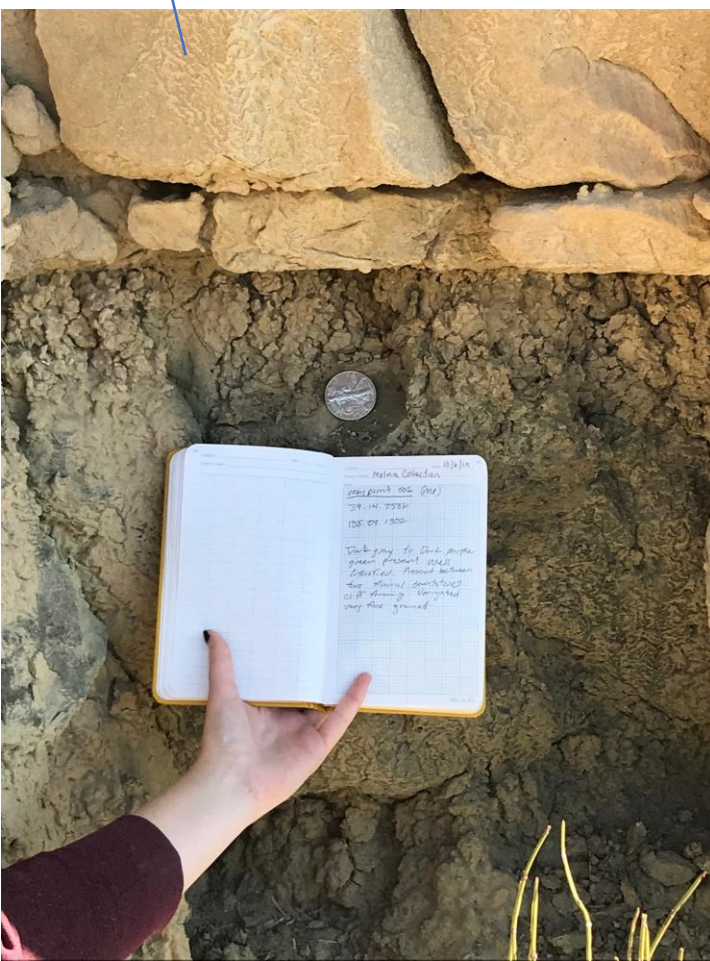 10/6/19
Molina Collection
Waypoint 006 (M1)
39.14.758
108.09.1302
Dark gray to Dark purple
green present well
lithified. Present between
two fluvial sandstones
cliff forming Variegated
very fine grained